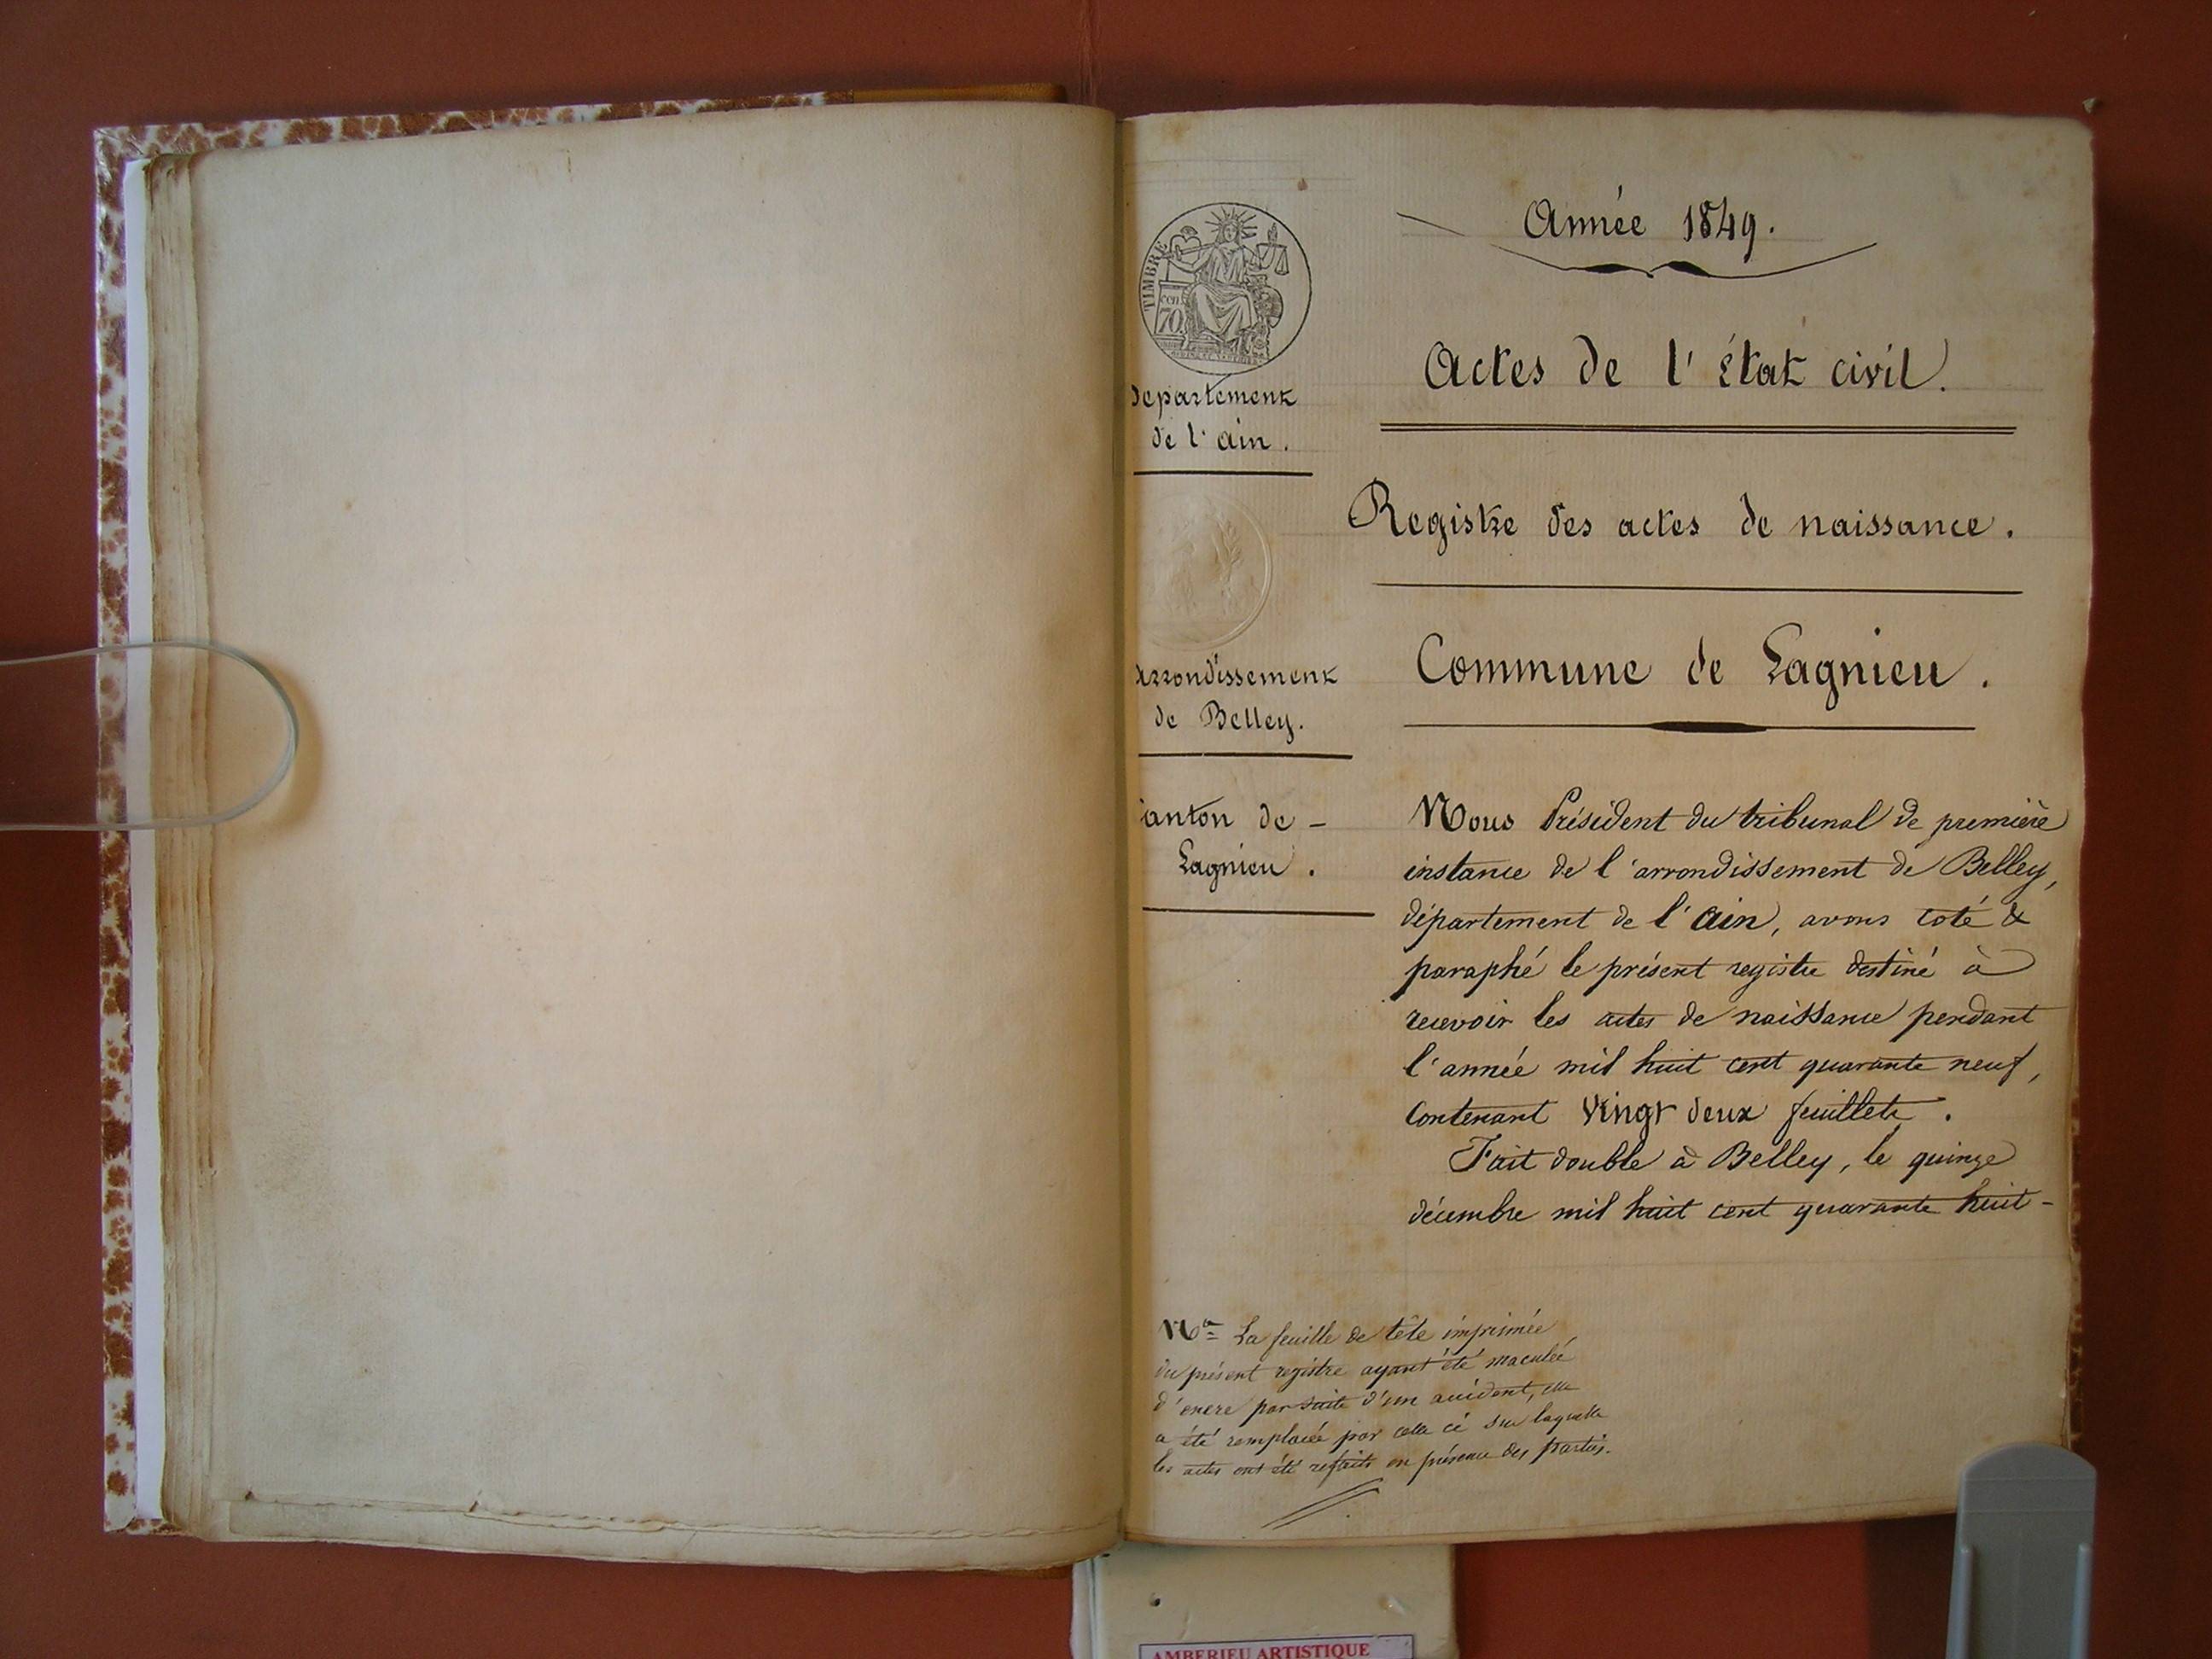 Année 1849.
Actes de l'état civil.
Registre des actes de naissance.
Commune de Lagnieu.
TIMBRE
cen
70
Departement
de l'ain.
Arrondissement
de Belley.
Canton de -
Lagnieu.
Nous Président du tribunal de première
instance de l'arrondissement de Belley,
département de l'Ain, avons coté &
paraphé le présent registre destiné à
recevoir les actes de naissance pendant
l'année mil huit cent quarante neuf,
contenant vingt deux feuillets.
Fait double à Belley, le quinze
décembre mil huit cent quarante huit -
Na La feuille de tête imprimée
du présent registre ayant été maculée
d'encre par suite d'un accident, elle
a été remplacée par celle ci sur laquelle
les actes ont été refaits en présence des parties.
AMBERIEU ARTISTIQUE